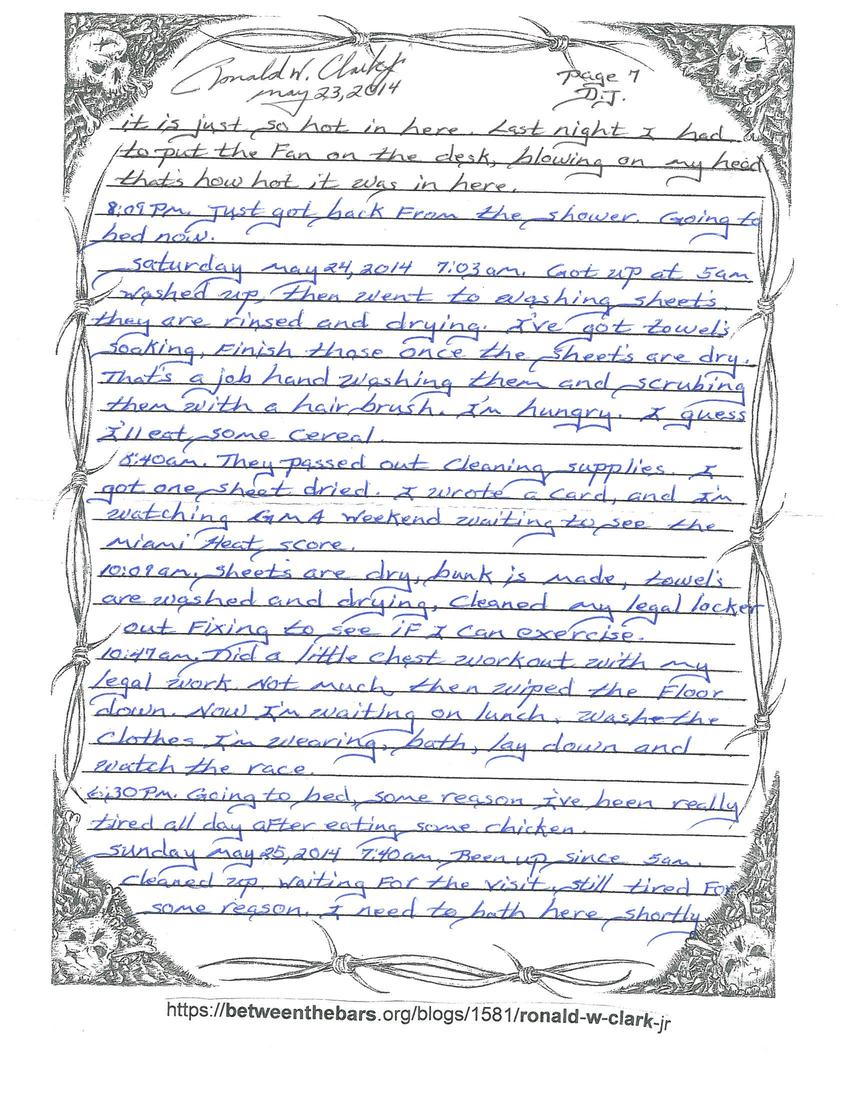 Ronald W. Clark Jr
May 23, 2014
Page 7
D.J.
it is just so hot in here. Last night I had
to put the Fan on the desk, blowing on my head
that's how hot it was in here.
8:09 PM. Just got back From the shower. Going to
bed now.
Saturday May 24, 2014 7:03 am. Got up at 5am
washed up, then went to washing sheets,
they are rinsed and drying. I've got towel's
soaking, Finish those once the sheet's are dry.
That's a job hand washing them and scrubing
them with a hair brush. I'm hungry. I guess
I'll eat some cereal.
8:40am. They passed out cleaning supplies. I
got one sheet dried. I wrote a card, and I'm
watching GMA weekend waiting to see the
Miami Heat score.
10:09 am. Sheets are dry, bunk is made, towel's
are washed and drying, Cleaned my legal locker
out Fixing to see iF I can exercise.
10:47 am. Did a little chest workout with my
legal work. Not much, then wiped the Floor
down. Now I'm waiting on lunch, washe the
clothes I'm wearing, bath, lay down and
watch the race.
6:30 PM. Going to bed, some reason I've been really
tired all day aFter eating some chicken.
Sunday May 25, 2014 7:40am. Been up since 5am.
cleaned up. Waiting For the visit, still tired For
some reason. I need to bath here shortly
https://betweenthebars.org/blogs/1581/ronald-w-clark-jr